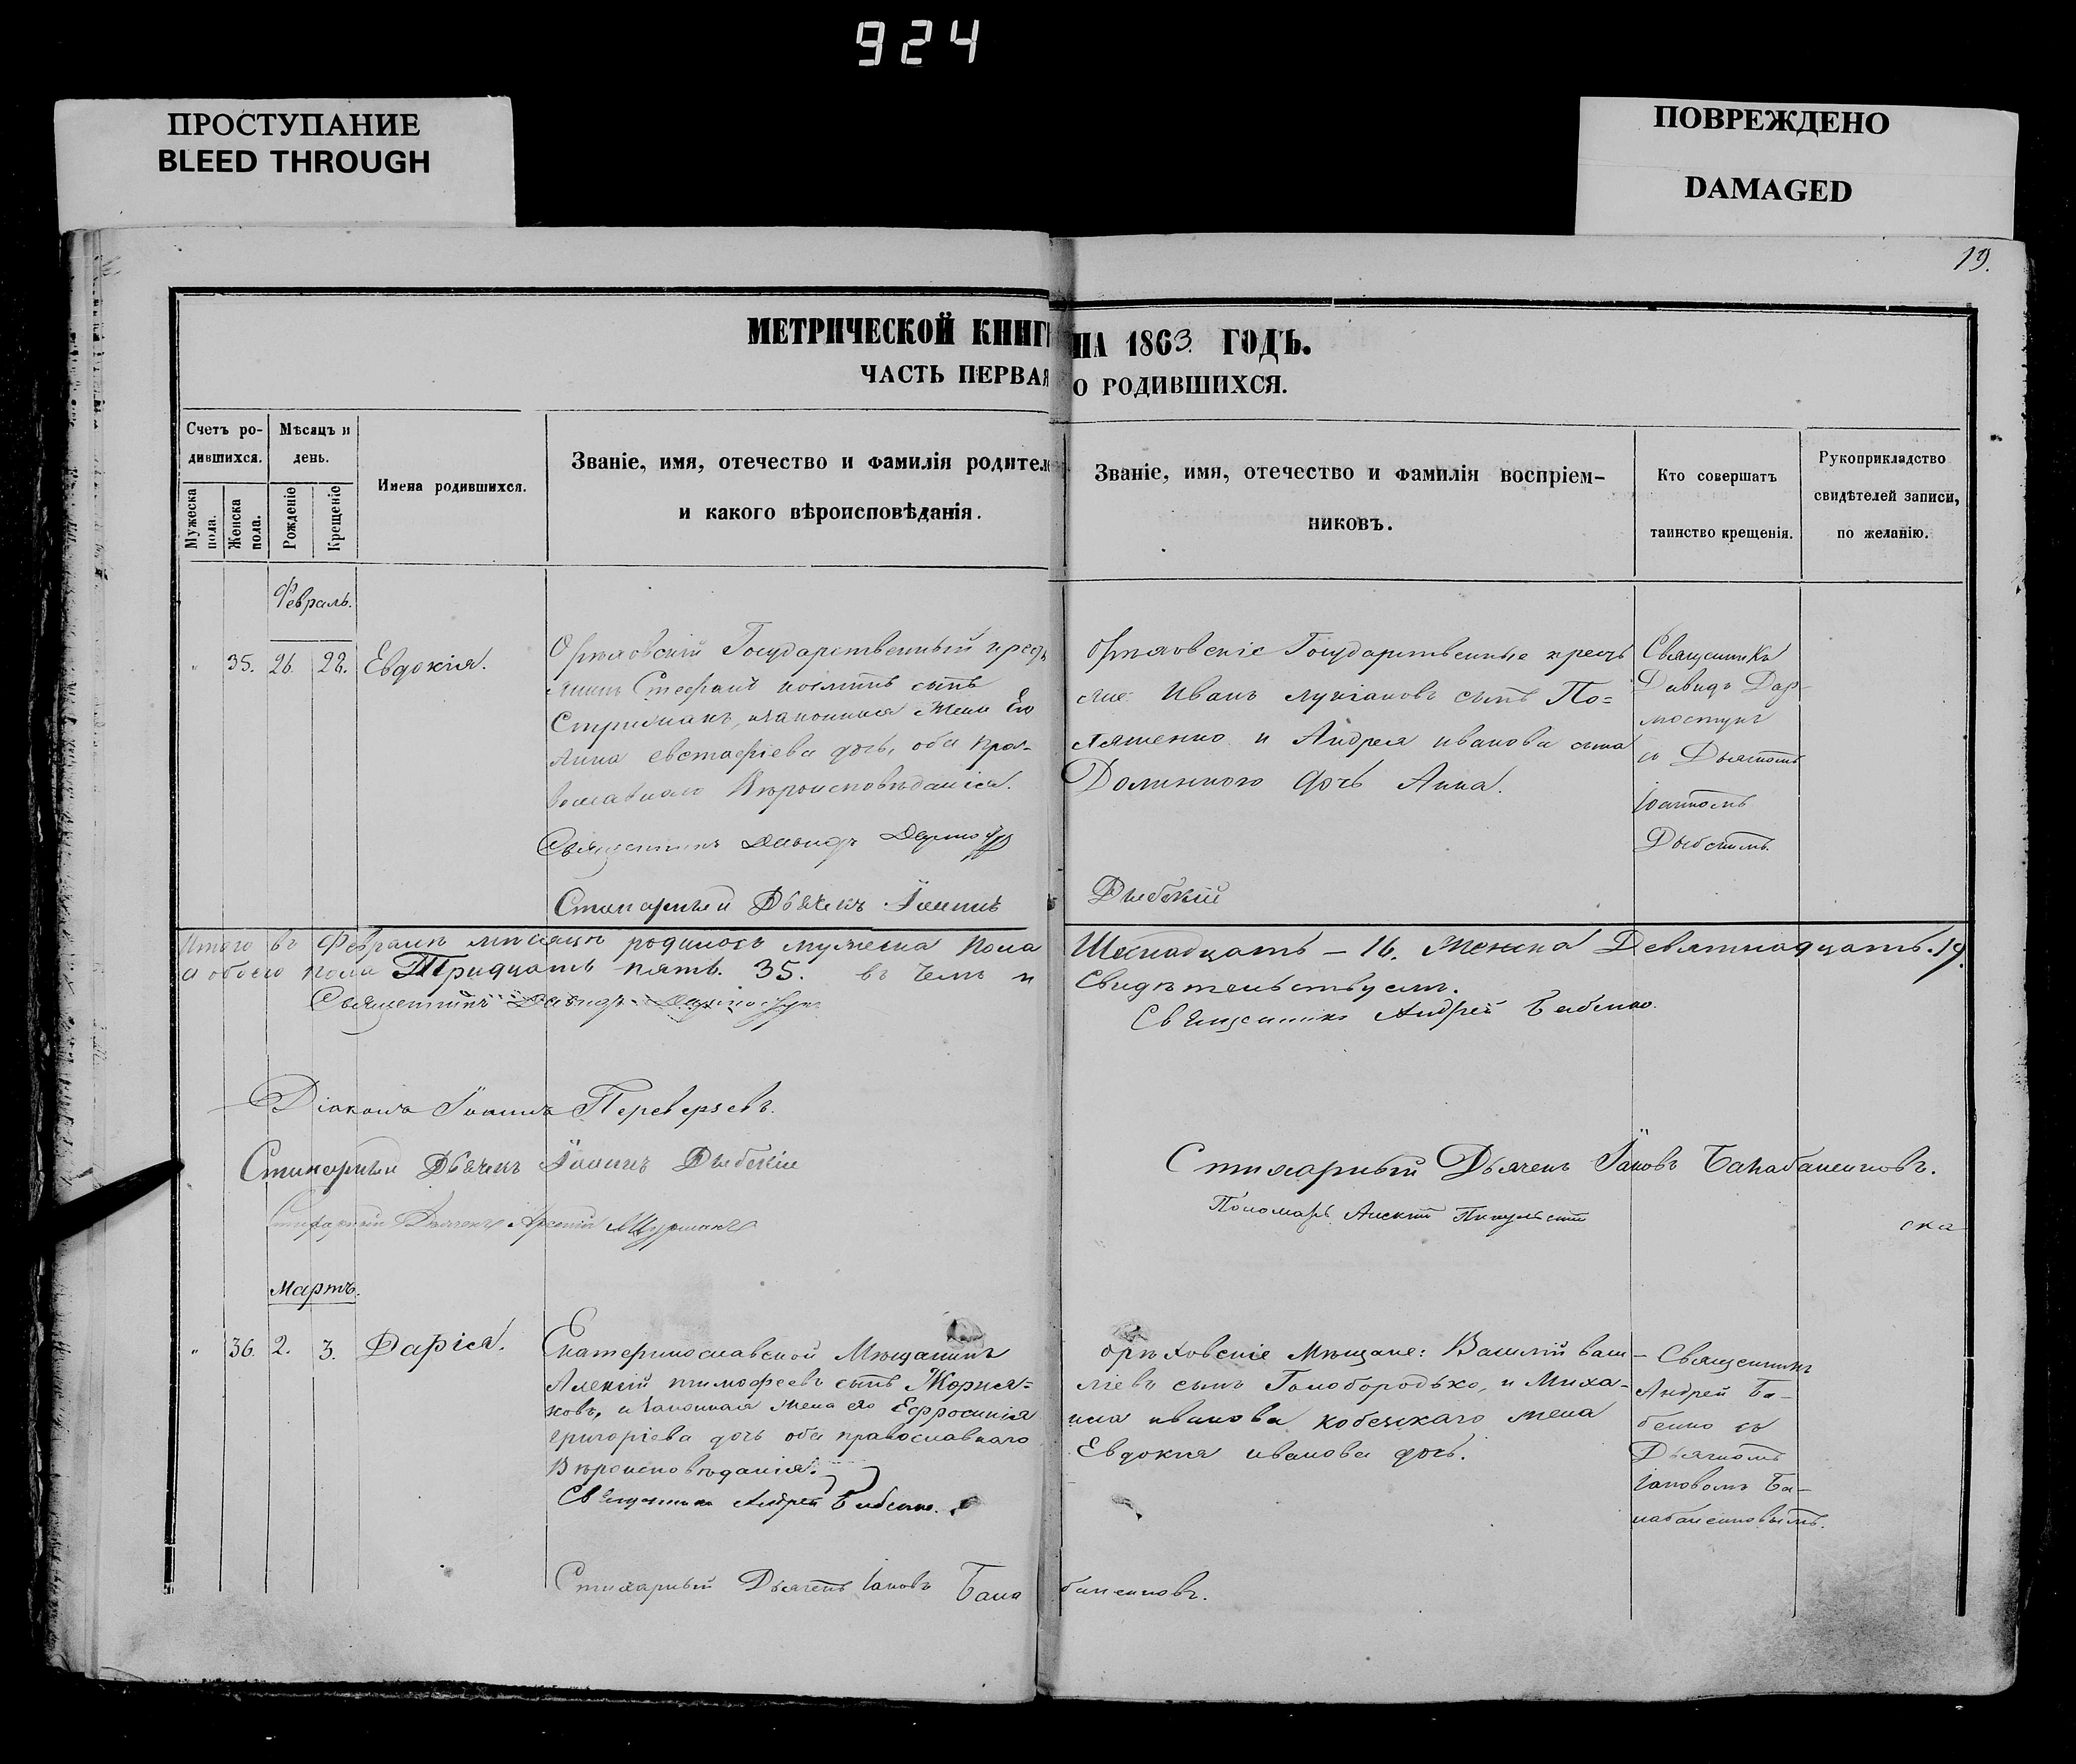 924
ПРОСТУПАНИЕ
BLEED THROUGH
ПОВРЕЖДЕНО
DAMAGED
19.
МЕТРИЧЕСКОЙ КНИГИ НА 1863 ГОДЪ.
ЧАСТЬ ПЕРВАЯ О РОДИВШИХСЯ.
Счетъ ро-
дившихся.
Мужеска пола.
Женска пола.
Мѣсяцъ и
день.
Рожденіе
Крещеніе
Имена родившихся.
Званіе, имя, отечество и фамилія родител
и какого вѣроисповѣданія.
Званіе, имя, отечество и фамилія воспріем-
никовъ.
Кто совершатъ
таинство крещенія.
Рукоприкладство
свидѣтелей записи,
по желанію.
Февраль.
" 35. 26. 28. Евдокія.
Орѣховскій Государственный крестъ
янинъ Стефанъ сынъ
законная жена Его
Анна Евстафіева дочь, оба пра-
вославнаго Вѣроисповѣданія.
Священникъ Давидъ
Стихарный Дьячекъ Іоаннъ
Орѣховскіе Государственные кресть
яне: Иванъ Лукіановъ сынъ По-
и Андрея Иванова сына
Долинного дочь Анна.
Священникъ
Давидъ Дар-
мостукъ
съ Дьячкомъ
Іоанномъ
Дыбскій
Итого въ Февралѣ мѣсяцѣ родилось мужеска пола Шеснадцать – 16. Женска Девятнадцать. 19.
а обоего пола Тридцать пять. 35. въ чемъ и Свидѣтельствуемъ.
Священникъ Давидъ
Священникъ Андрей Бабенко.
Діаконъ Іоаннъ Переверзевъ.
Стихарный Дьячекъ Іоаннъ Дыбскій
Стихарный Дьячекъ Іаковъ Балабаненковъ.
Стихарный Дьячекъ
Пономарь
ска
Мартъ.
" 36. 2. 3. Дарія.
Екатеринославской Мѣщанинъ
Алексій Тимофеевъ сынъ Корня-
ковъ, и Законная жена его Ефросинія
Григоріева дочь оба православнаго
Вѣроисповѣданія.
Священникъ Андрей Бабенко.
Стихарный Дьячекъ Іаковъ Бала
баненковъ.
Орѣховскіе Мѣщане: Василій Васи-
ліевъ сынъ Голобородько, и Миха-
ила Иванова жена
Евдокія Иванова дочь.
Священникъ
Андрей Ба-
бенко съ
Дьячкомъ
Іаковомъ Ба-
лабаненковымъ.